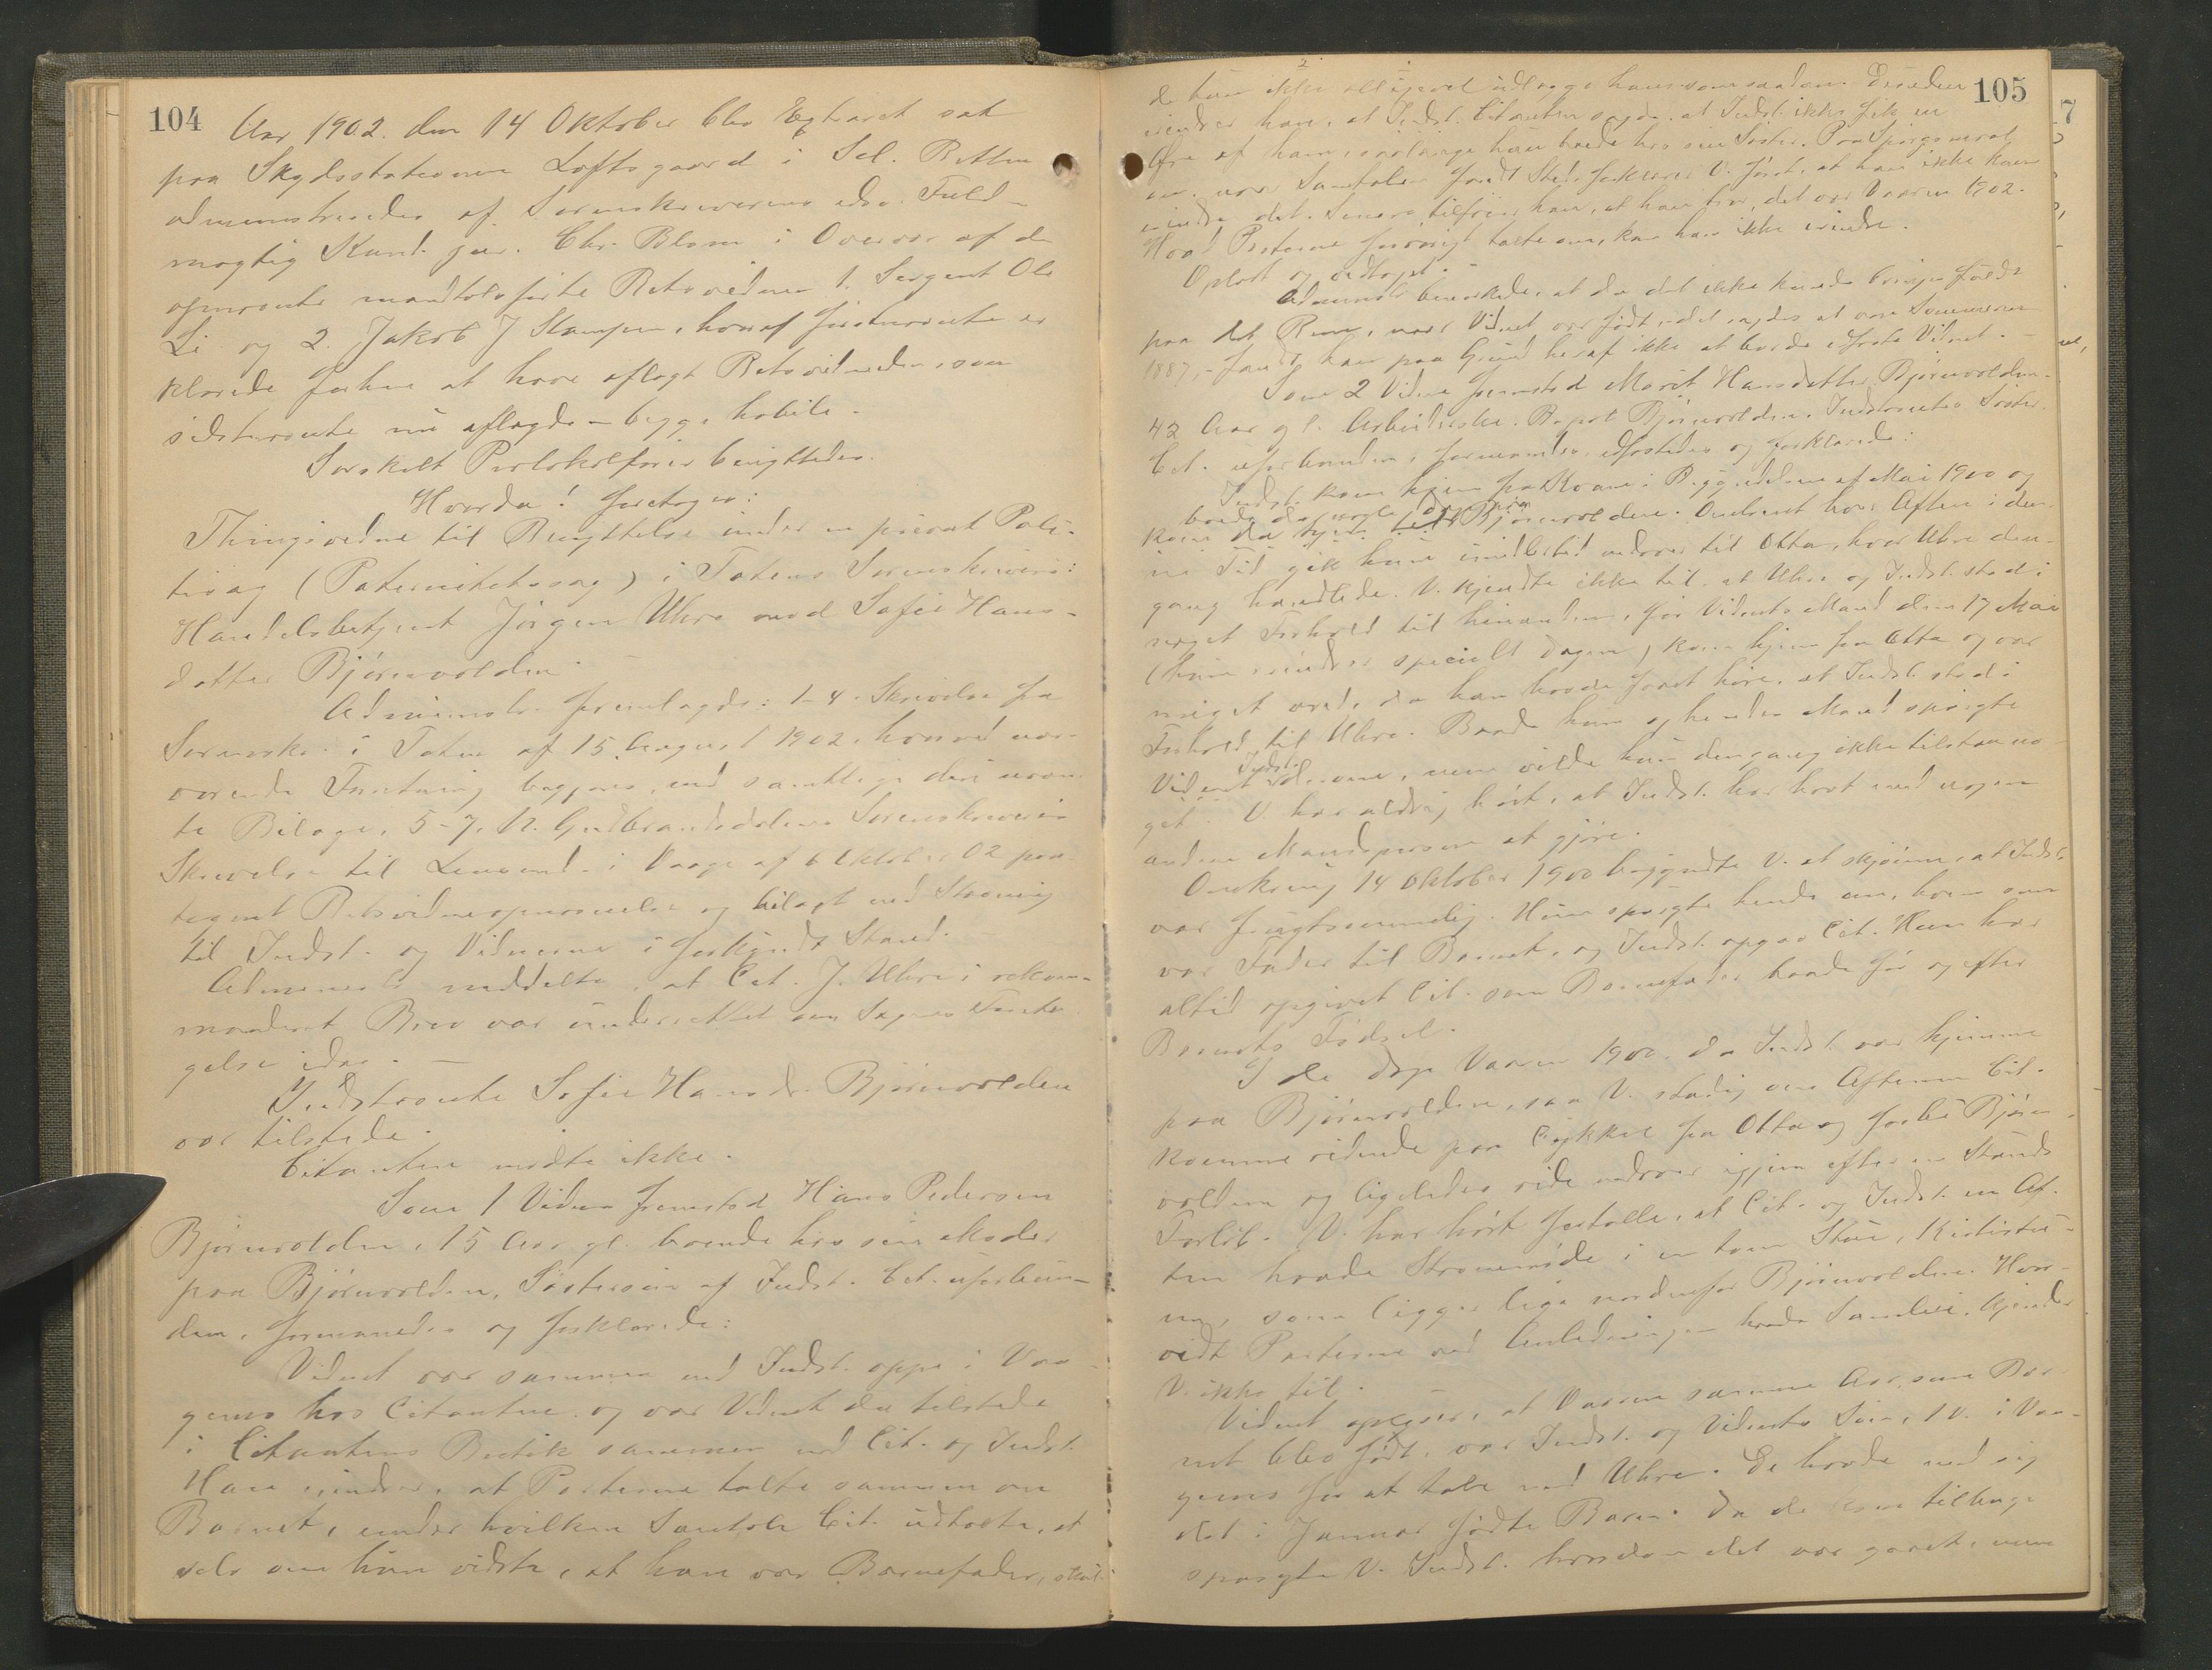 104
Aar 1902 den 14 Oktober blev Extraret sat
paa Skydsstationen Loftsgaard i Sel. Retten
administreredes af Sorenskriverens eds. Fuld-
mægtig Kand. jur. Chr. Blom i Overvær af de
opnævnte mandtalsførte Retsvidner 1. Sergent Ole
Li og 2. Jakob J Stampen, hvoraf førstnævnte er-
klærede forhen at have aflagt Retsvidneden, som
sidstnævnte nu aflagde – begge habile.
Særskilt Protokolfører benyttedes.
Hvorda! foretoges:
Thingsvidne til Benyttelse under en privat Poli-
tisag (Paternitetssag) i Totens Sorenskriveri:
Handelsbetjent Jörgen Uhre mod Sofie Hans-
datter Björnvolden.
Administr. fremlagde: 1-4. Skrivelse fra
Sorenskr. i Toten af 15 August 1902, hvorved nær-
værende Forretning begjæres, med samtlige deri nævn-
te Bilage, 5-7, N. Gudbrandsdalens Sorenskriveris
Skrivelse til Lensmd. i Vaage af 6 Oktober 02 paa-
tegnet Retsvidneopnævnelse og bilagt med Stævning
til Indst. og Vidnerne i forkyndt Stand. –
Administr. meddelte, at Cit. J. Uhre i rekom-
manderet Brev var underrettet om Sagens Foreta-
gelse idag. –
Indstævnte Sofie Hansd. Björnvolden
var tilstede.
Citanten mødte ikke.
Som 1 Vidne fremstod Hans Pedersen
Björnvolden, 15 Aar gl. boende hos sin Moder
paa Björnvolden, Søstersøn af Indst. Cit. uforbun-
den, formanedes og forklarede:
Vidnet var sammen med Indst. oppe i Vaa-
gemo hos Citanten og var Vidnet da tilstede
i Citantens Butik sammen med Cit. og Indst.
Han erindrer, at Parterne talte sammen om
Barnet, under hvilken Samtale Cit. udtalte, at
selv om hun vidste, at han var Barnefader, skul-
105
de hun ikke alligevel udlægge ham som saadan. Desuden
erindrer han, at Indst. Citanten sagde, at Indst. ikke fik en
Øre af ham, saalænge hun boede hos sin Søster. Paa Spørgsmaal
om, naar Samtalen fandt Sted, forklarer V. først, at han ikke kan
erindre det. Senere tilføier han, at han tror, det var Vaaren 1902.
Hvad Parterne forøvrigt talte om, kan han ikke erindre.
Oplæst og vedtaget. –
Administr. bemærkede, at da det ikke kunde bringes fuldt
paa det Rene, naar Vidnet var født, idet sagdes at være Sommeren
1887, – fandt han paa Grund heraf ikke at burde edfæste Vidnet. –
Som 2 Vidne fremstod Marit Hansdatter Björnvolden.
42 Aar gl. Arbeiderske. B. paa Björnvolden. Indstævntes Søster.
Cit. uforbunden, formanedes, edfæstedes og forklarede:
Indst. kom hjem fra Kvam i Begyndelsen af Mai 1900 og
boede da nogle Dage paa Björnvolden. Omtrent hver Aften i den-
ne Tid gik hun imidlertid nedover til Otta, hvor Uhre den-
gang handlede. V. kjendte ikke til, at Uhre og Indst. stod i
noget Forhold til hinanden, før Vidnets Mand den 17 Mai
(hun erindrer specielt Dagen) kom hjem fra Otta og var
meget vred, da han havde faaet høre, at Indst. stod i
Forhold til Uhre. Baade hun og hendes Mand spurgte
Indst. derom, men vilde hun dengang ikke tilstaa no-
get. V. har aldrig hørt, at Indst. har havt med nogen
anden Mandsperson at gjøre.
Omkring 14 Oktober 1900 begyndte V. at skjønne, at Indst.
var frugtsommelig. Hun spurgte hende om, hvem som
var Fader til Barnet, og Indst. opgav Cit. Hun har
altid opgivet Cit. som Barnefader baade før og efter
Barnets Fødsel.
I de Dage Vaaren 1900, da Indst. var hjemme
paa Björnvolden, saa V. stadig om Aftenen Cit.
komme ridende paa Cykkel fra Otta og forbi Björn-
volden og ligeledes ride nedover igjen efter en Stunds
Forløb. V. har hørt fortælle, at Cit. og Indst. en Af-
ten havde Stevnemøde i en tom Stue, Krististu-
en, som ligger lige nordenfor Björnvolden. Hvor-
vidt Parterne ved Anledningen havde Samleie, kjender
V. ikke til.
Vidnet oplyser, at Vaaren samme Aar, som Bar-
net blev født, var Indst. og Vidnets Søn, 1 V. i Vaa-
gemo for at tale med Uhre. De havde med sig
det i Januar fødte Barn. Da de kom tilbage
spurgte V. Indst. hvordan det var gaaet, men